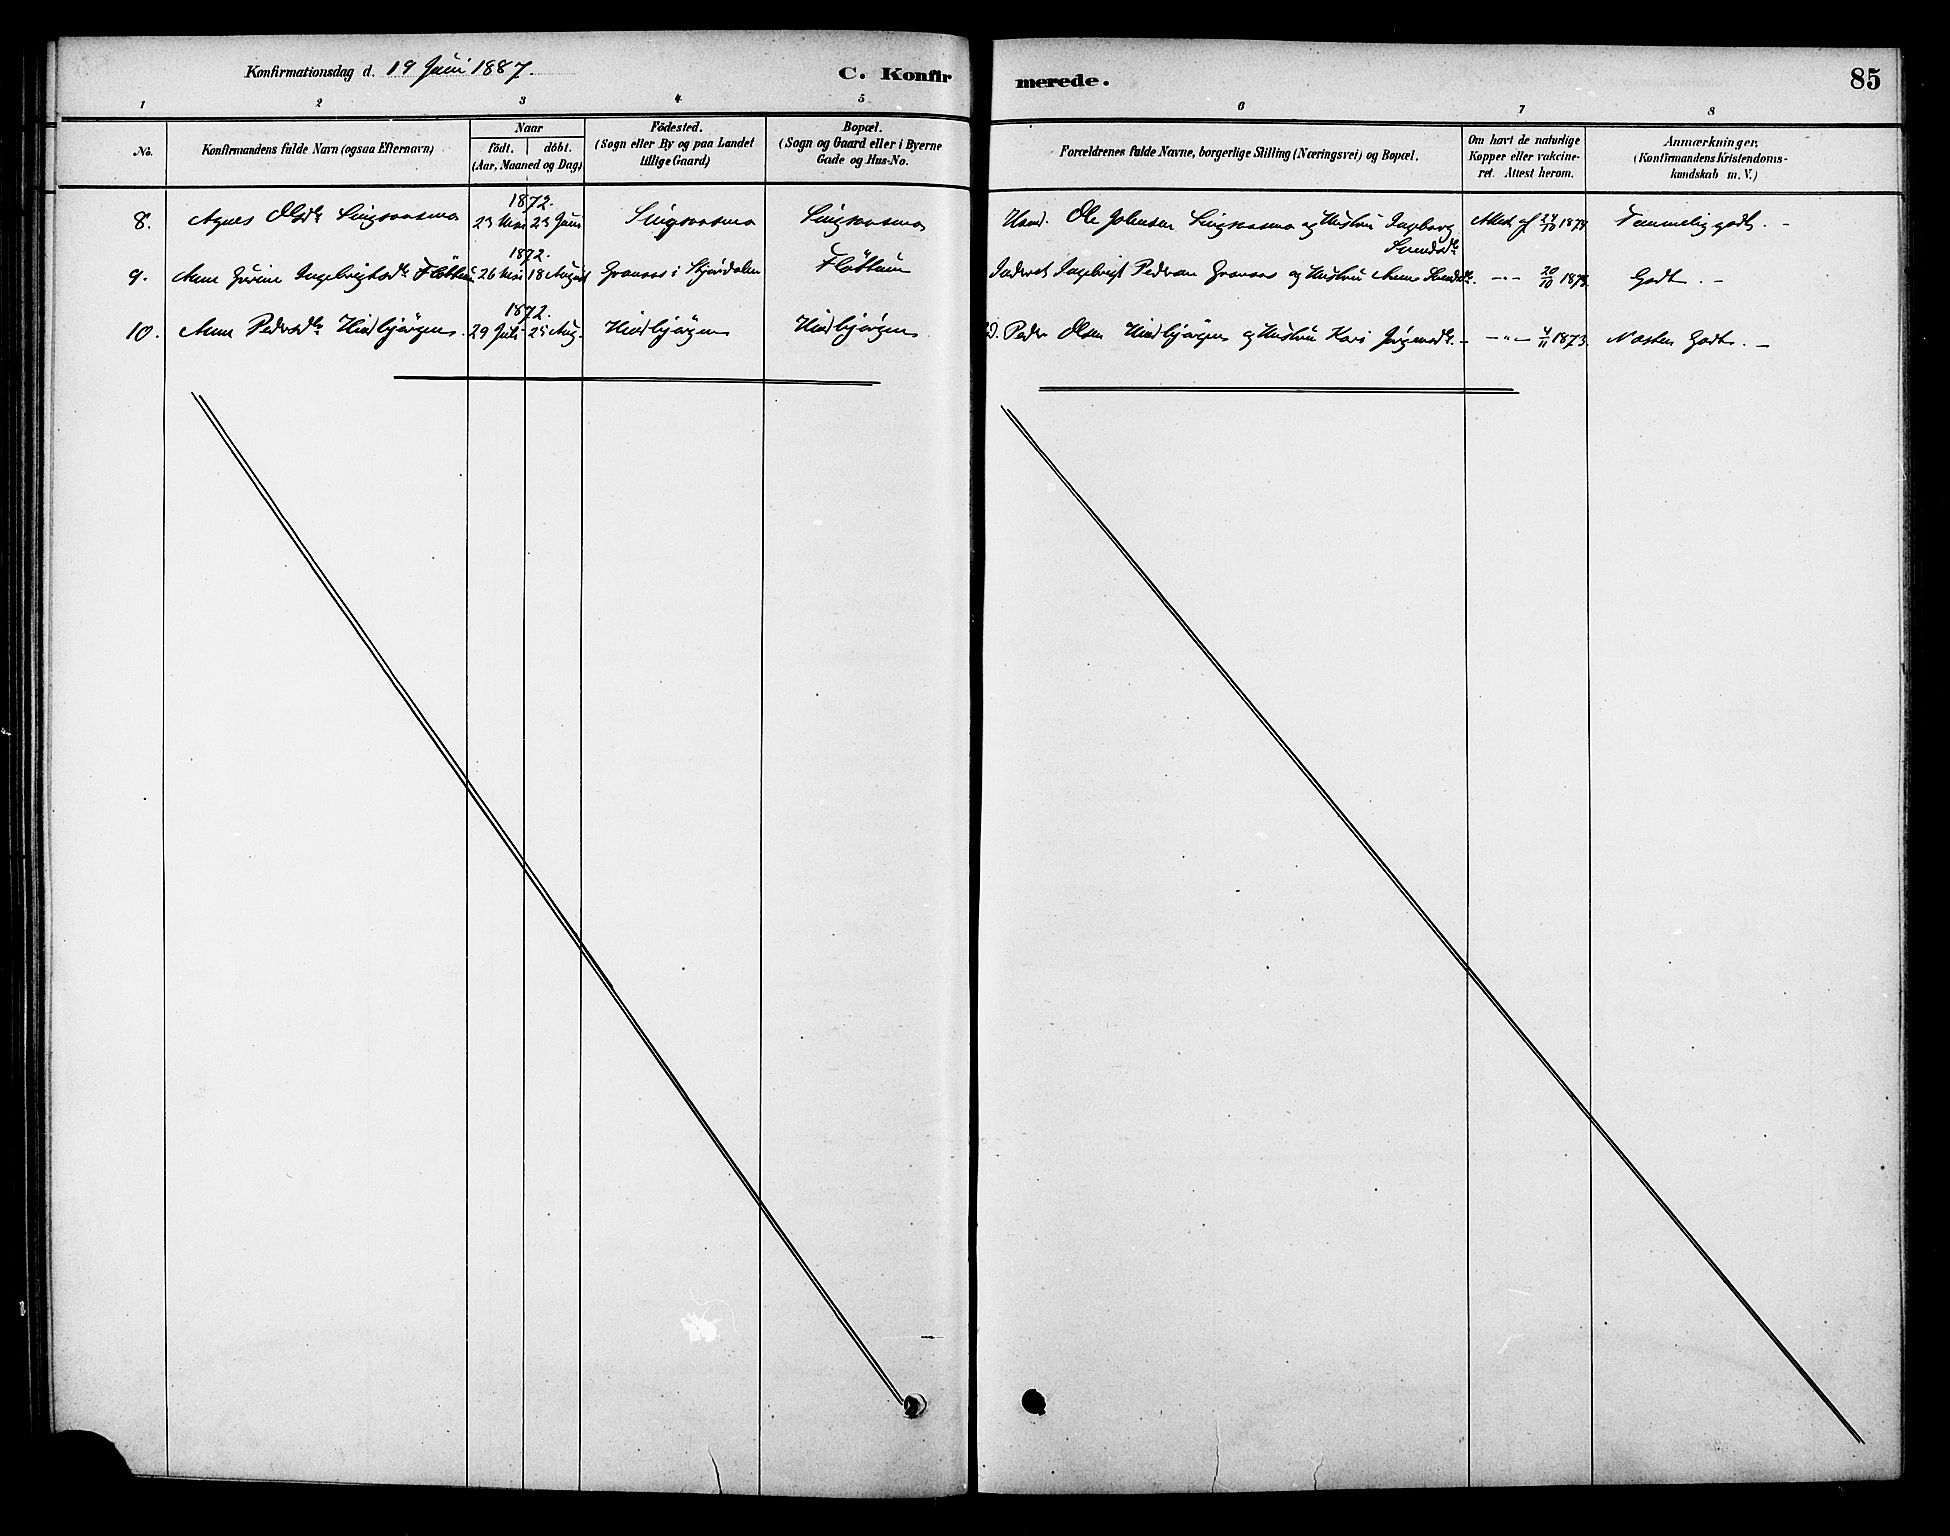 Konfirmationsdag d. 19 Juni 1887.
C. Konfirmerede.
85
1 2 3 4 5 6 7 8
No.
Konfirmandens fulde Navn (ogsaa Efternavn)
Naar
födt. döbt.
(Aar, Maaned og Dag)
Födested.
(Sogn eller By og paa Landet
tillige Gaard)
Bopæl.
(Sogn og Gaard eller i Byerne
Gade og Hus-No.
Forældrenes fulde Navne, borgerlige Stilling (Næringsvei) og Bopæl.
Om havt de naturlige
Kopper eller vakcine-
ret. Attest herom.
Anmærkninger.
(Konfirmandens Kristendoms-
kundskab m. V.)
1872.
8. Agnes Olsdtr Singsaasmo 23 Mai 23 Juni Singsaasmo Singsaasmo Ole Johnsen Singsaasmo og Hustru Ingeborg Attest af 1874 Temmelig godt. -
Svendsdtr
1872.
9. Anne Gurine Ingebrigtsdtr Fløttum 26 Mai 18 August Granaas i Stjørdalen Fløttum Inderst Ingebrigt Pedersen Granaas og Hustru Anne Svendsdtr. -"- 20/10 1873. Godt. -
1872.
10. Anne Pedersdtr Hindbjørgen. 29 Juli 25 Aug. Hindbjørgen Hindbjørgen Peder Olsen Hindbjørgen og Hustru Kari Jørgensdtr. - -"- 4/11 1873. Næsten Godt. -